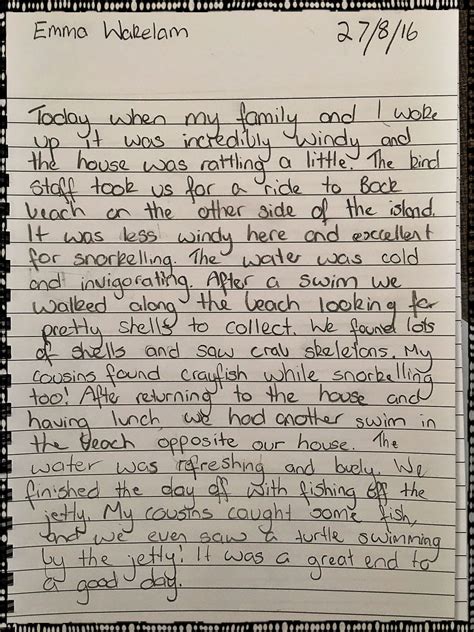 Emma Wakelam 27/8/16
Today when my family and I woke
up it was incredibly windy and
the house was rattling a little. The kind
staff took us for a ride to Back
beach on the other side of the island.
It was less windy here and excellent
for snorkelling. The water was cold
and invigorating. After a swim we
walked along the beach looking for
pretty shells to collect. We found lots
of shells and saw crab skeletons. My
cousins found crayfish while snorkelling
too! After returning to the house and
having lunch we had another swim in
the beach opposite our house. The
water was refreshing and lively. We
finished the day off with fishing off the
jetty. My cousins caught some fish,
and we even saw a turtle swimming
by the jetty! It was a great end to
a good day.